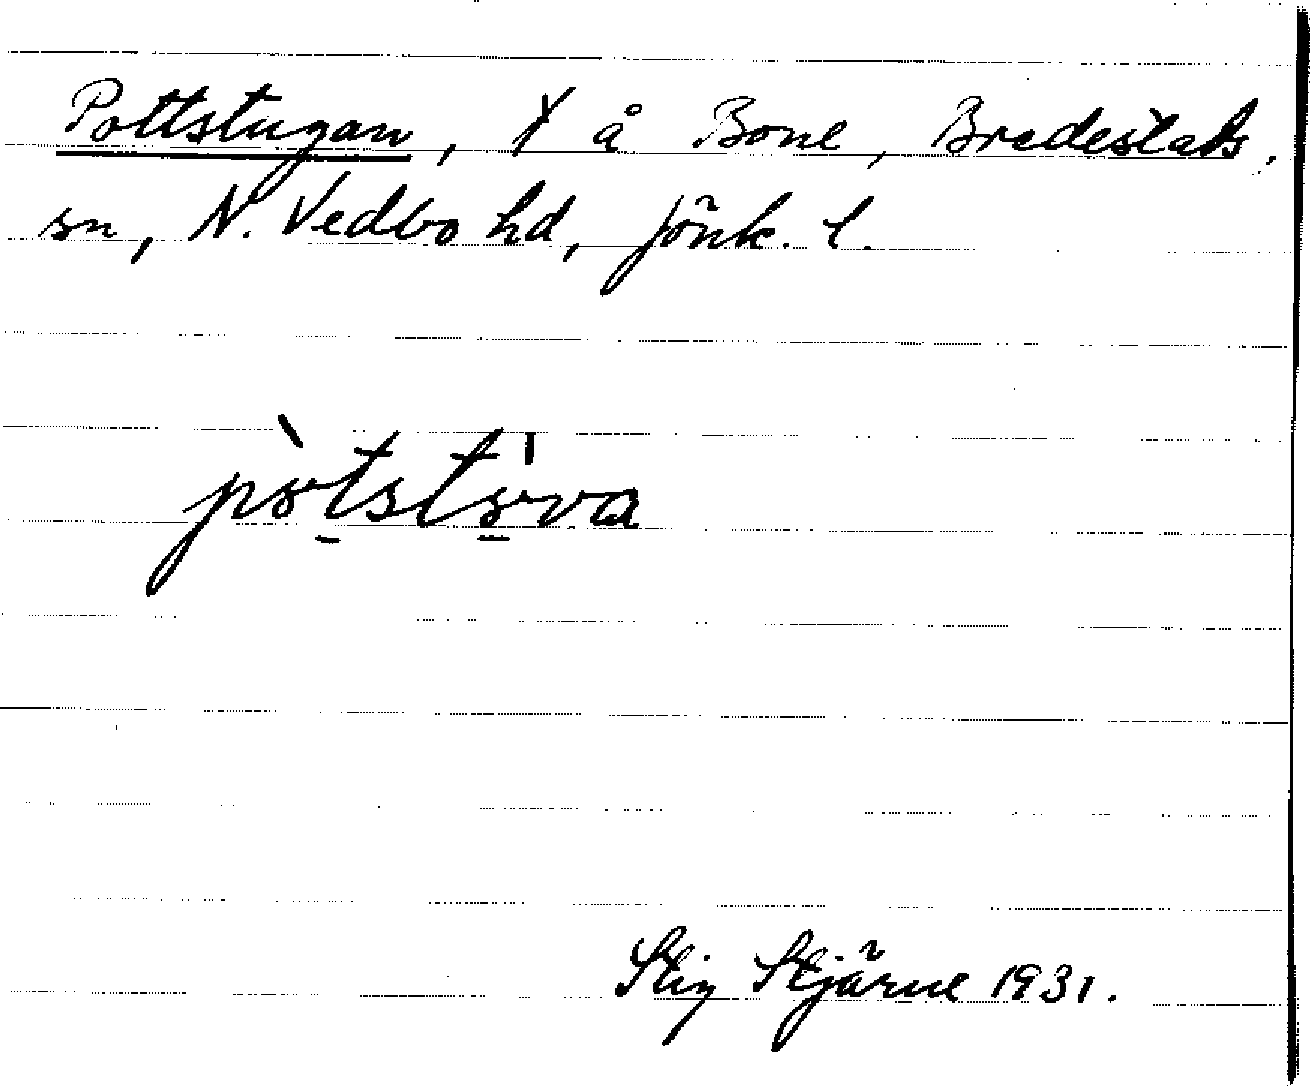 Pottstugan, X å Bone, Bredestads
sn, N. Vedbo hd, Jönk. l.
pòtstóva
Stig Stjärne 1931.